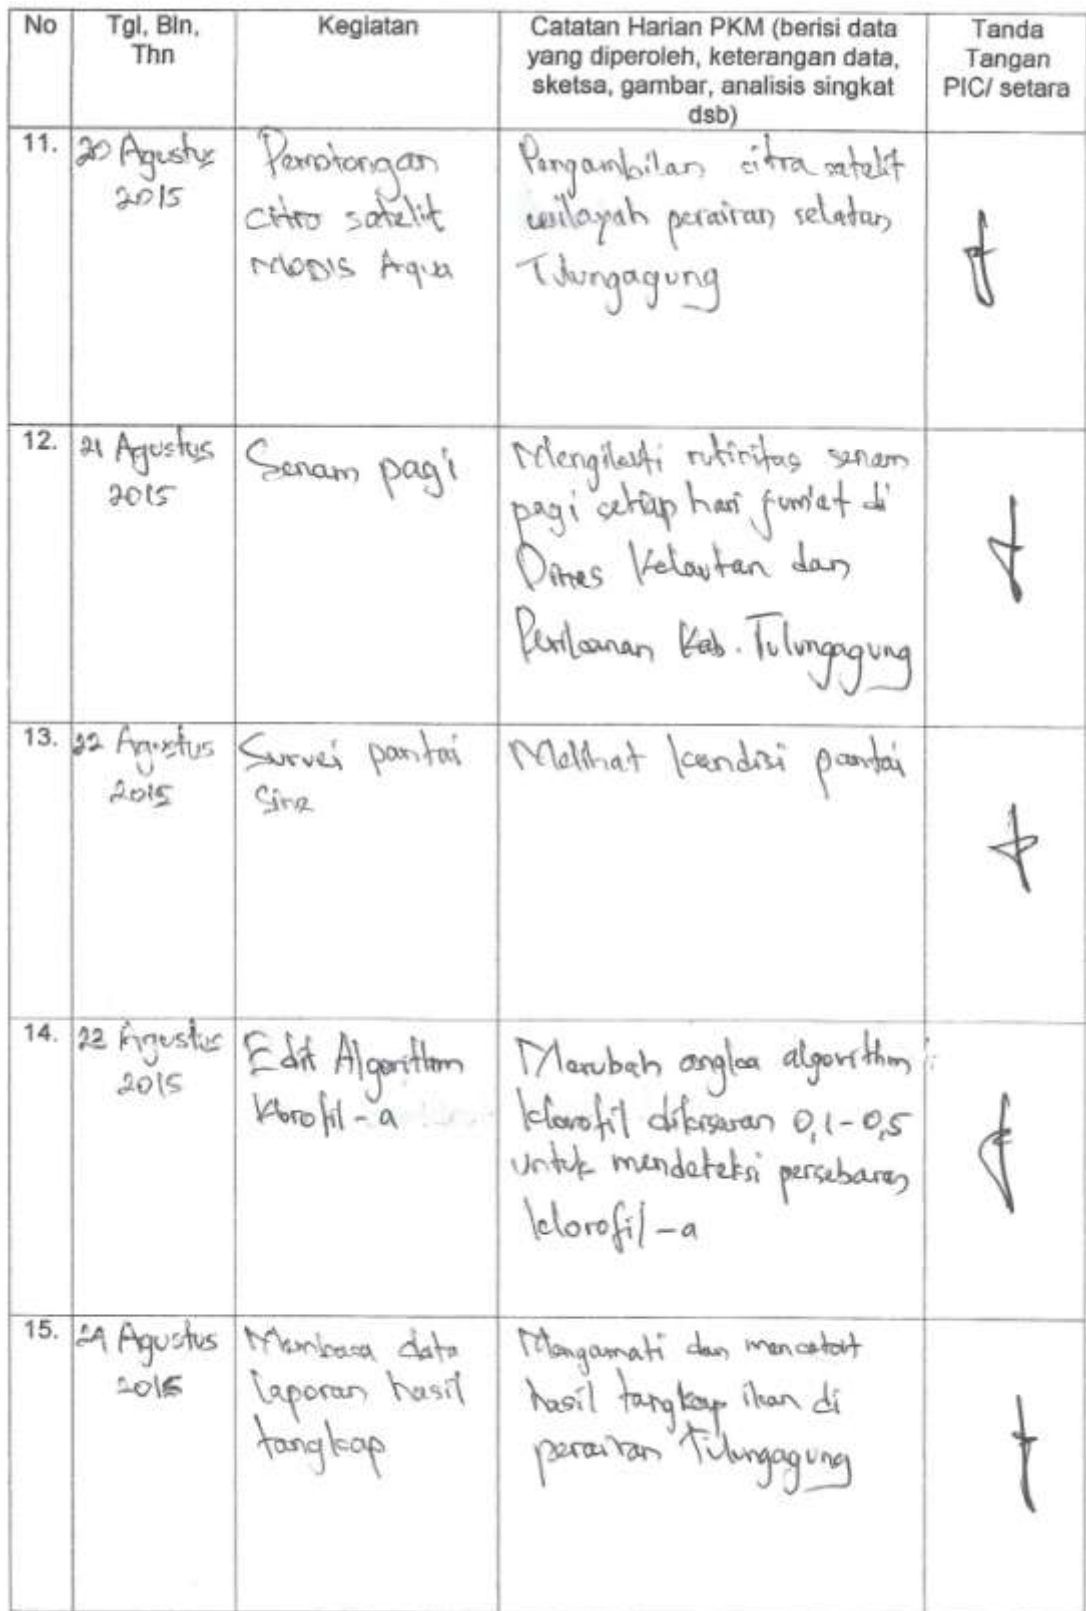 No
Tgl, Bln,
Thn
Kegiatan
Catatan Harian PKM (berisi data
yang diperoleh, keterangan data,
sketsa, gambar, analisis singkat
dsb)
Tanda
Tangan
PIC/ setara
11.
20 Agustus
2015
Pemotongan
citra satelit
MODIS Aqua
Pengambilan citra satelit
wilayah perairan selatan
Tulungagung
12.
21 Agustus
2015
Senam pagi
Mengikuti rutinitas senam
pagi setiap hari jum'at di
Dinas Kelautan dan
Perikanan Kab. Tulungagung
13.
22 Agustus
2015
Survei pantai
Sine
Melihat kondisi pantai
14.
23 Agustus
2015
Edit Algorithm
Klorofil-a
Merubah angka algorithm
klorofil dikisaran 0,1-0,5
untuk mendeteksi persebaran
klorofil-a
15.
24 Agustus
2015
Membaca data
laporan hasil
tangkap
Mengamati dan mencatat
hasil tangkap ikan di
perairan Tulungagung